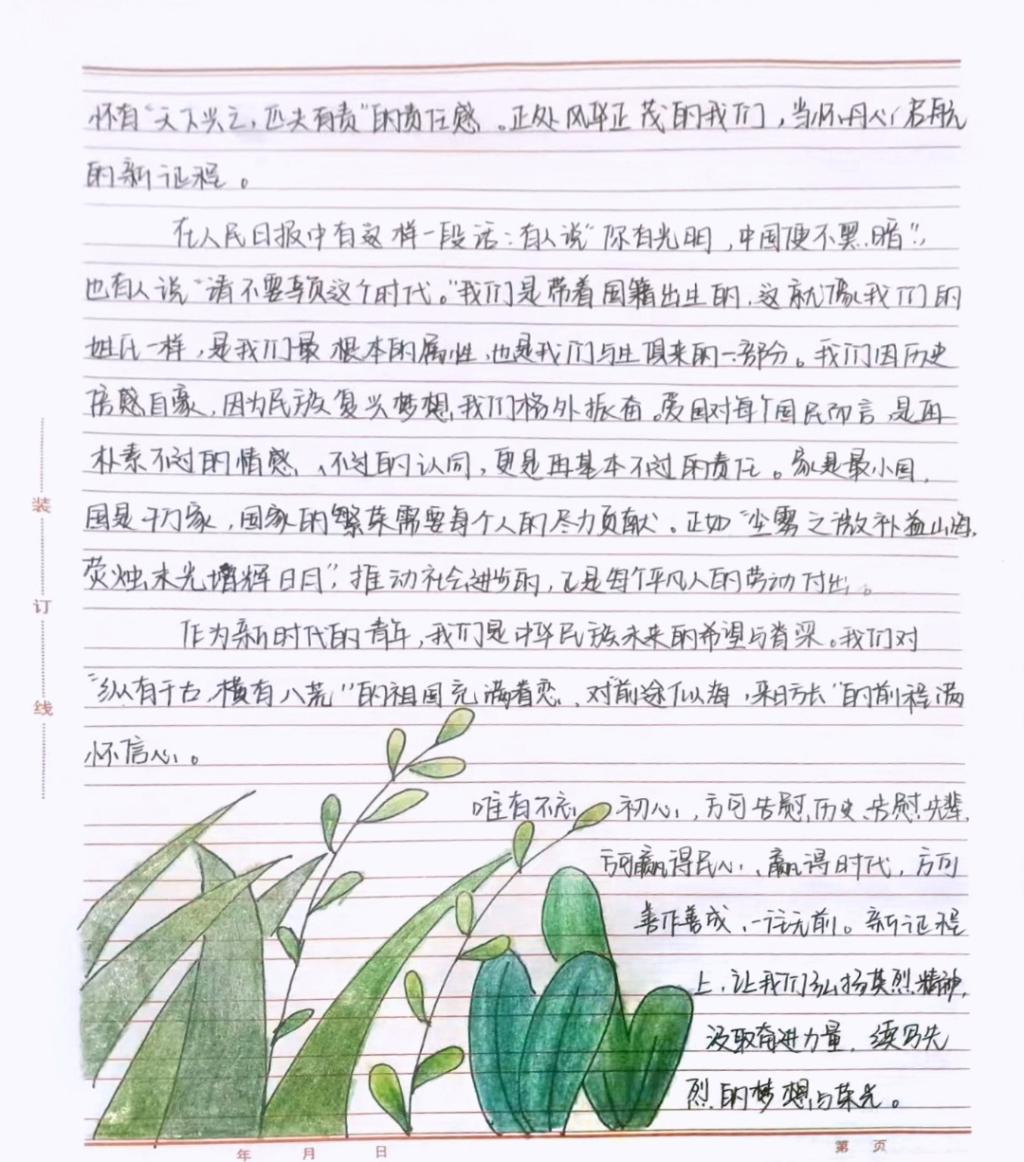 怀有“天下兴亡，匹夫有责”的责任感。正处风华正茂的我们，当怀丹心启航
的新征程。
在人民日报中有这样一段话：有人说“你有光明，中国便不黑暗”，
也有人说“请不要辜负这个时代。”我们是带着国籍出生的，这就像我们的
姓氏一样，是我们最根本的属性，也是我们与生俱来的一部分。我们因历史
倍感自豪，因为民族复兴梦想，我们格外振奋。爱国对每个国民而言，是再
朴素不过的情感、不过的认同，更是再基本不过的责任。家是最小国，
国是千万家，国家的繁荣需要每个人的尽力贡献。正如“尘雾之微补益山海，
荧烛末光增辉日月”，推动社会进步的，正是每个平凡人的劳动付出。
作为新时代的青年，我们是中华民族未来的希望与脊梁。我们对
“纵有千古，横有八荒”的祖国充满眷恋、对“前途似海，来日方长”的前程满
怀信心。
唯有不忘初心，方可告慰历史、告慰先辈，
方可赢得民心、赢得时代，方可
善作善成，一往无前。新征程
上，让我们弘扬英烈精神，
汲取奋进力量，续写先
烈的梦想与荣光。
装
订
线
年 月 日
第 页